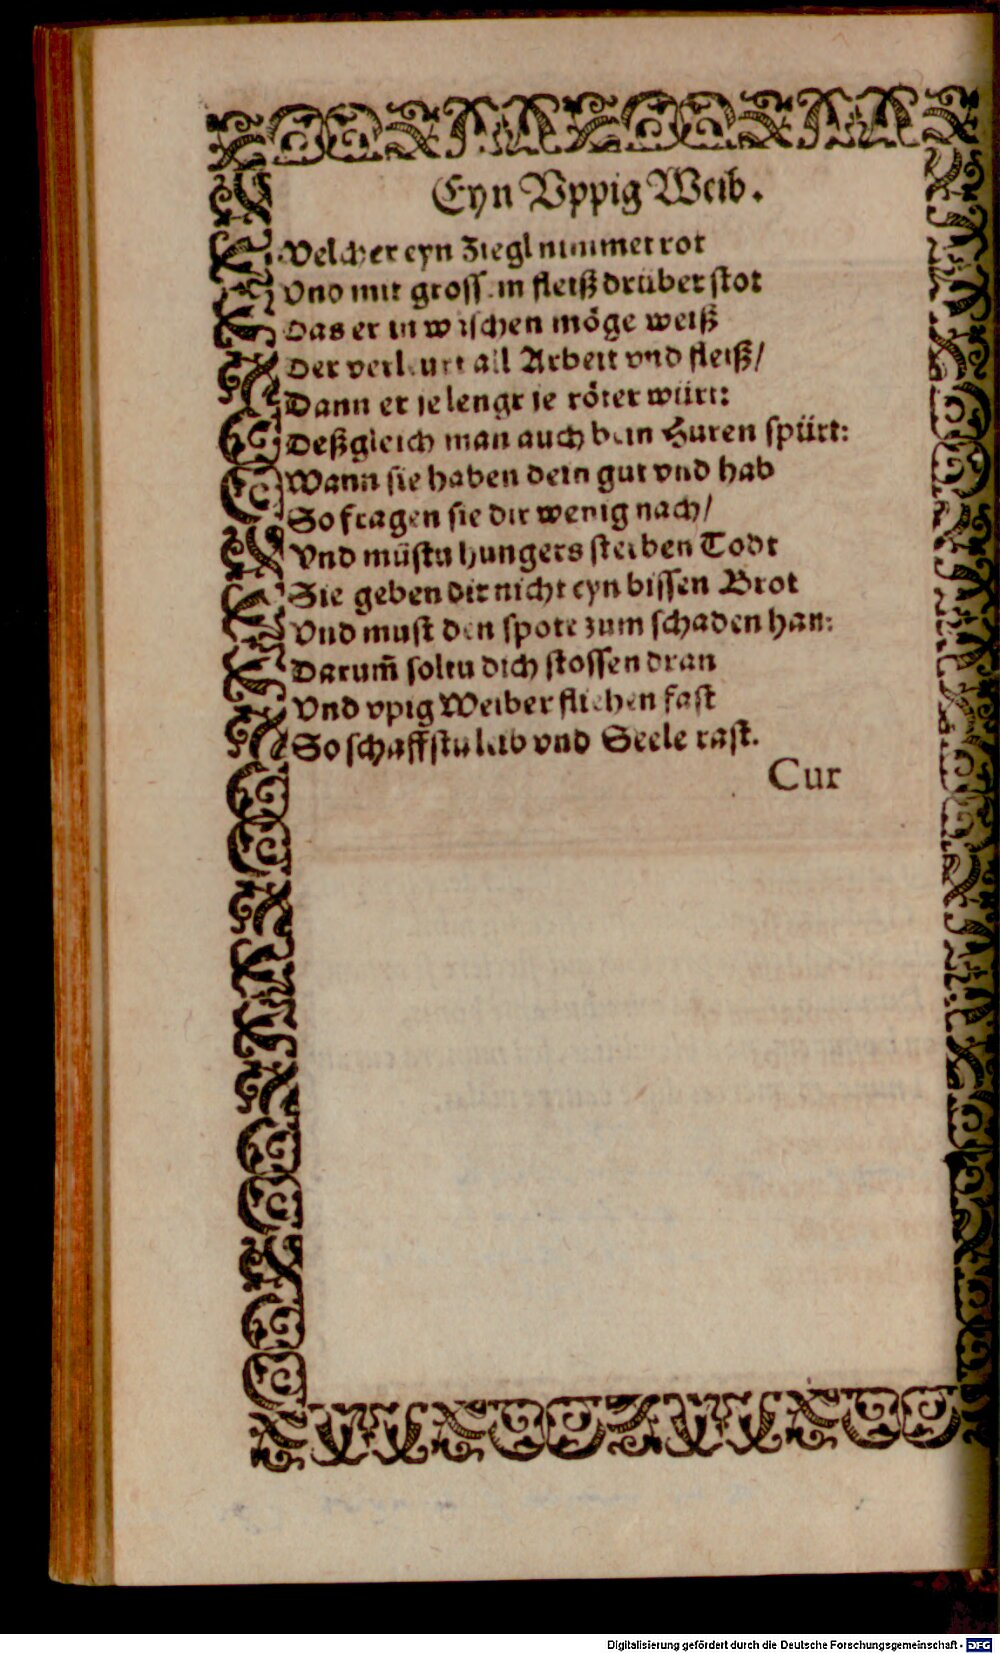 Eyn Vppig Weib.
Welcher eyn Ziegl nimmet rot
Vnd mit grossem fleiß drüber stot
Das er in wäschen möge weiß
Der verleurt all Arbeit vnd fleiß/
Dann er je lengr je röter würt:
Deßgleich man auch bein Huren spürt:
Wann sie haben dein gut vnd hab
So fragen sie dir wenig nach/
Vnd müstu hungers sterben Todt
Sie geben dir nicht eyn bissen Brot
Vnd must den spott zum schaden han:
Darum̃ soltu dich stossen dran
Vnd vpig Weiber fliehen fast
So schaffstu leib vnd Seele rast.
Cur
Digitalisierung gefördert durch die Deutsche Forschungsgemeinschaft - DFG